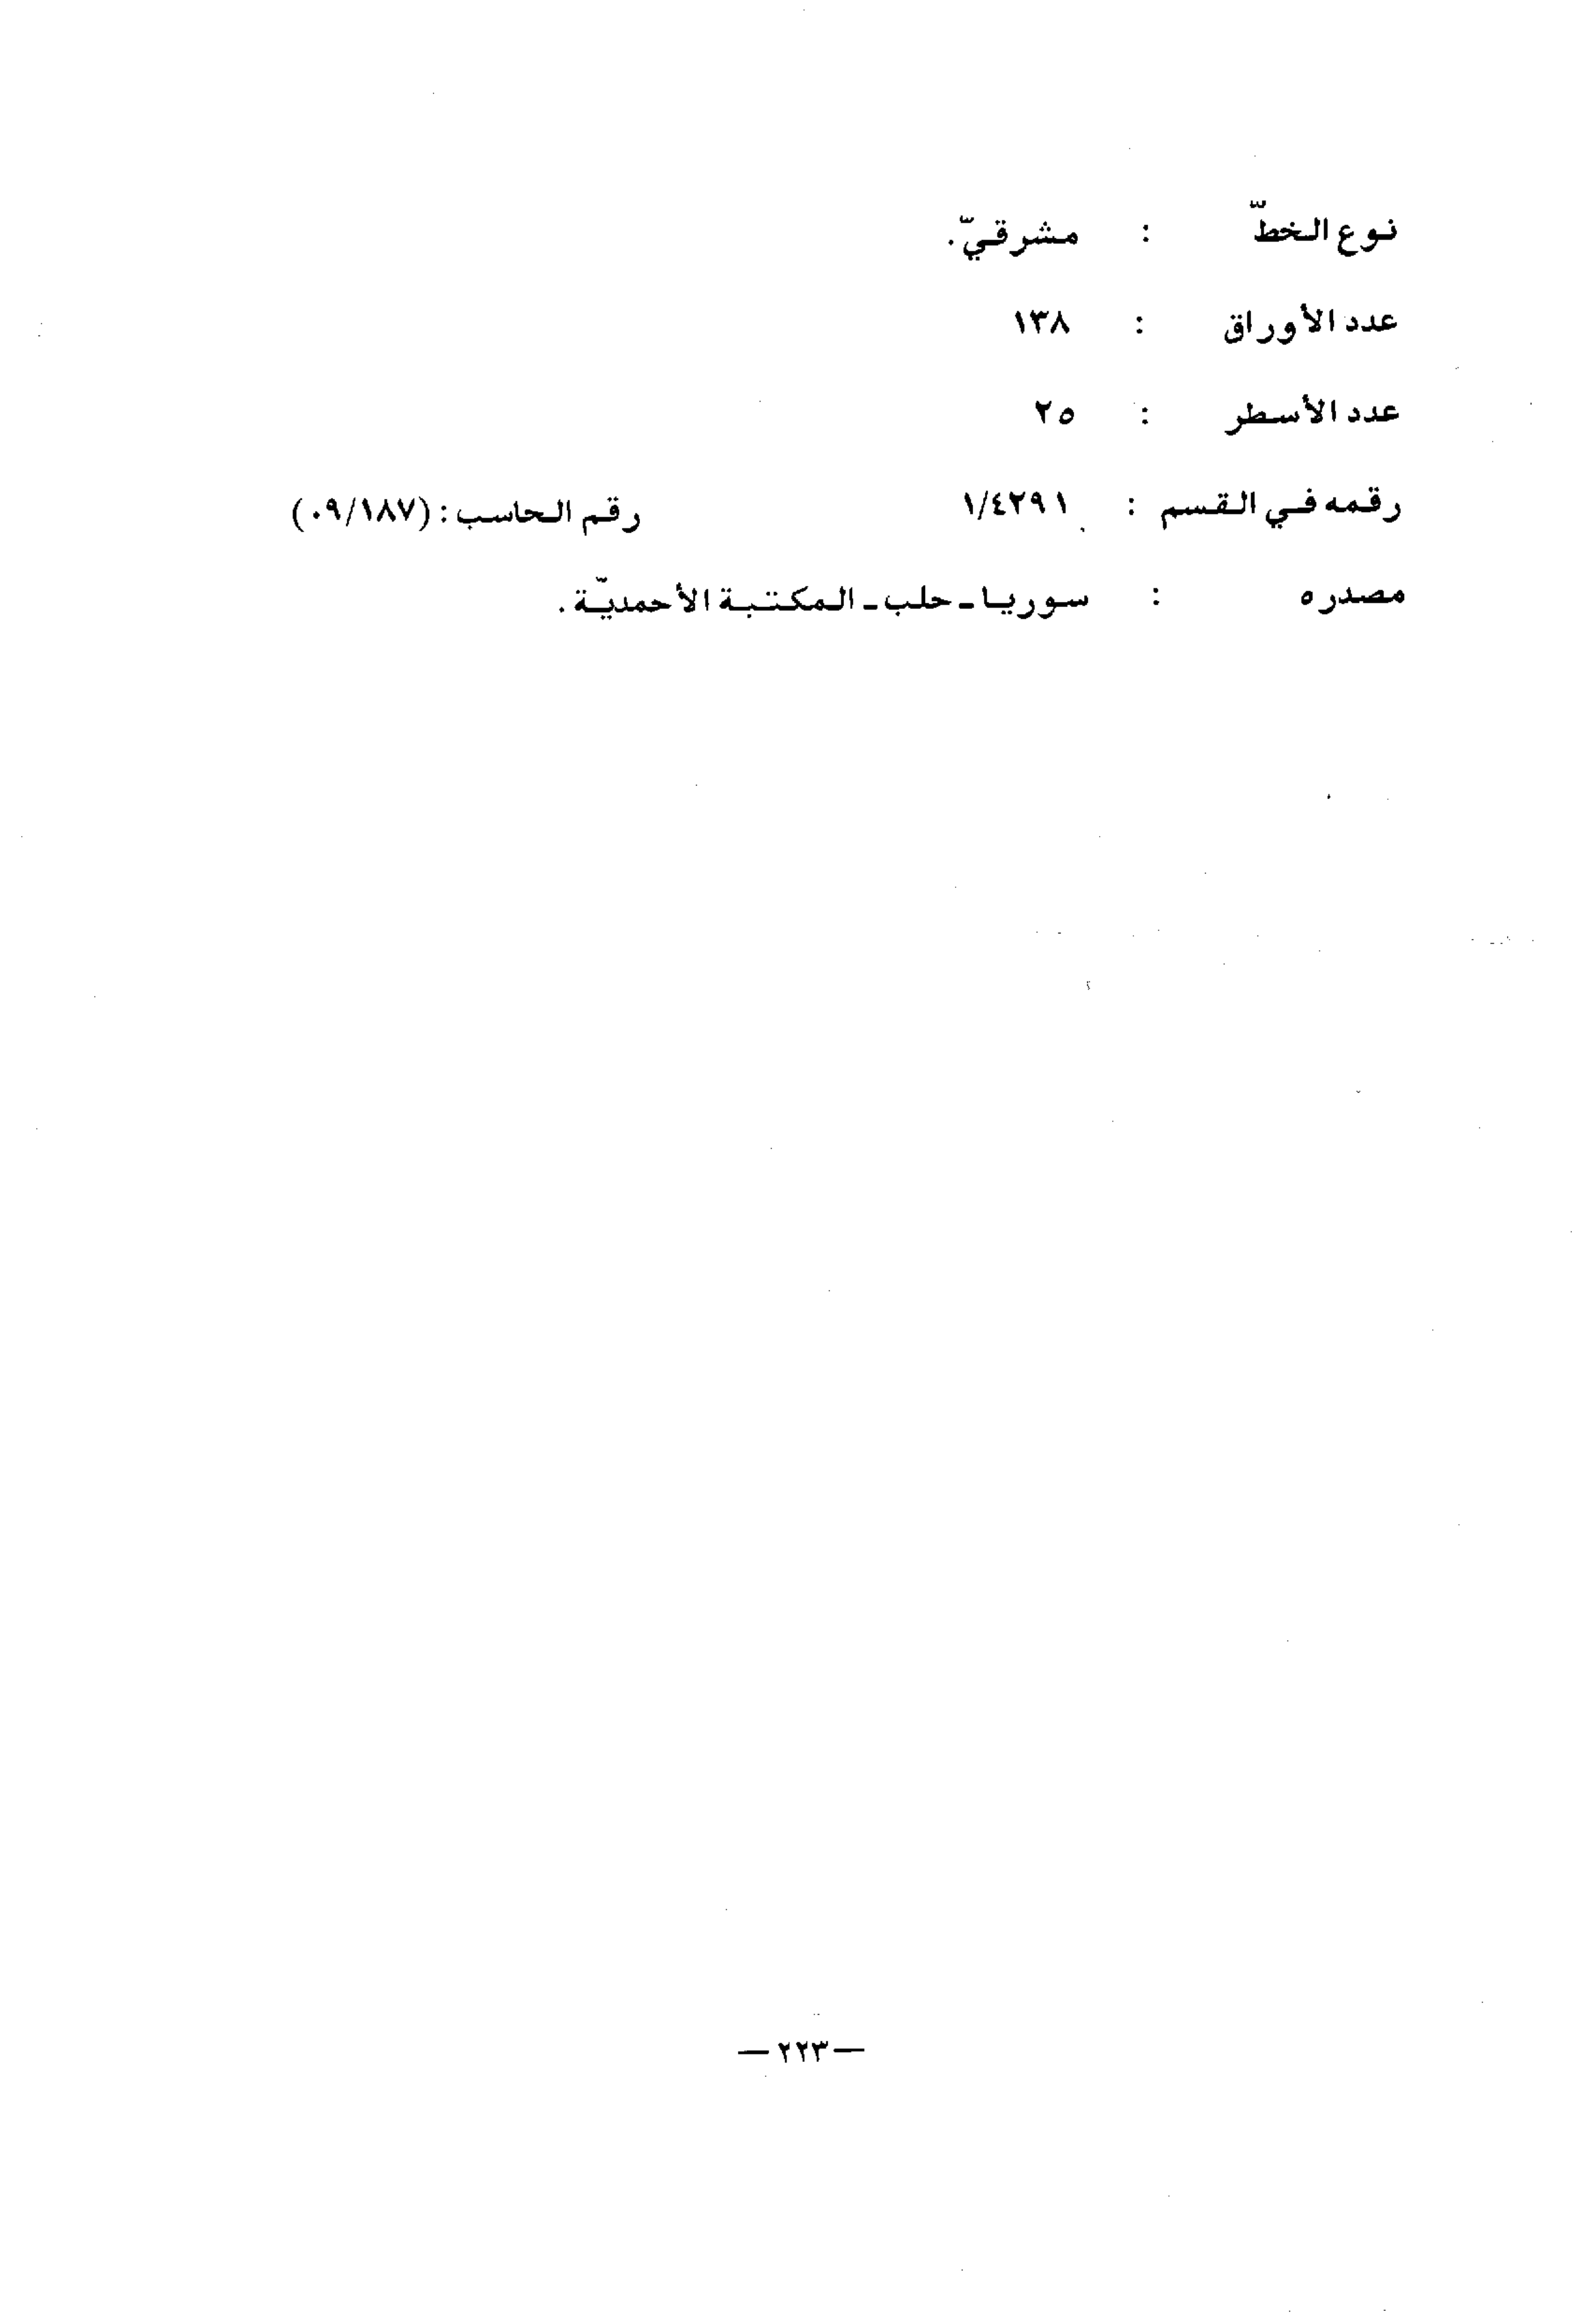 نوع الخطّ : مشرقيّ.
عدد الأوراق : ١٣٨
عدد الأسطر : ٢٥
رقمه في القسم : ١/٤٢٩١ رقم الحاسب : (٠٩/١٨٧)
مصدره : سوريا ـ حلب ـ المكتبة الأحمديّة .
— ٢٢٣ —